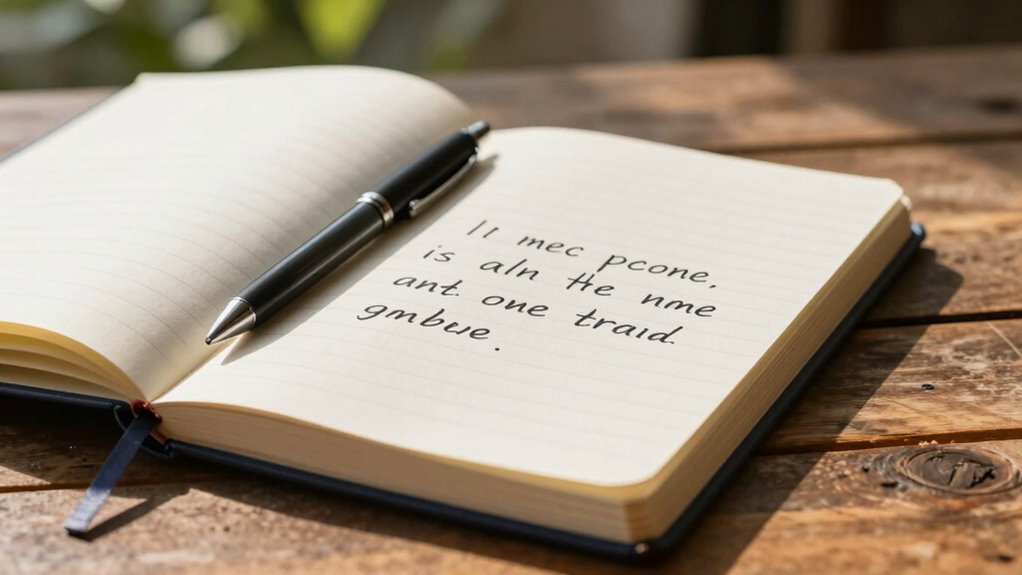 II mec pcone,
is aln the nme
ant one traid
gmbue.